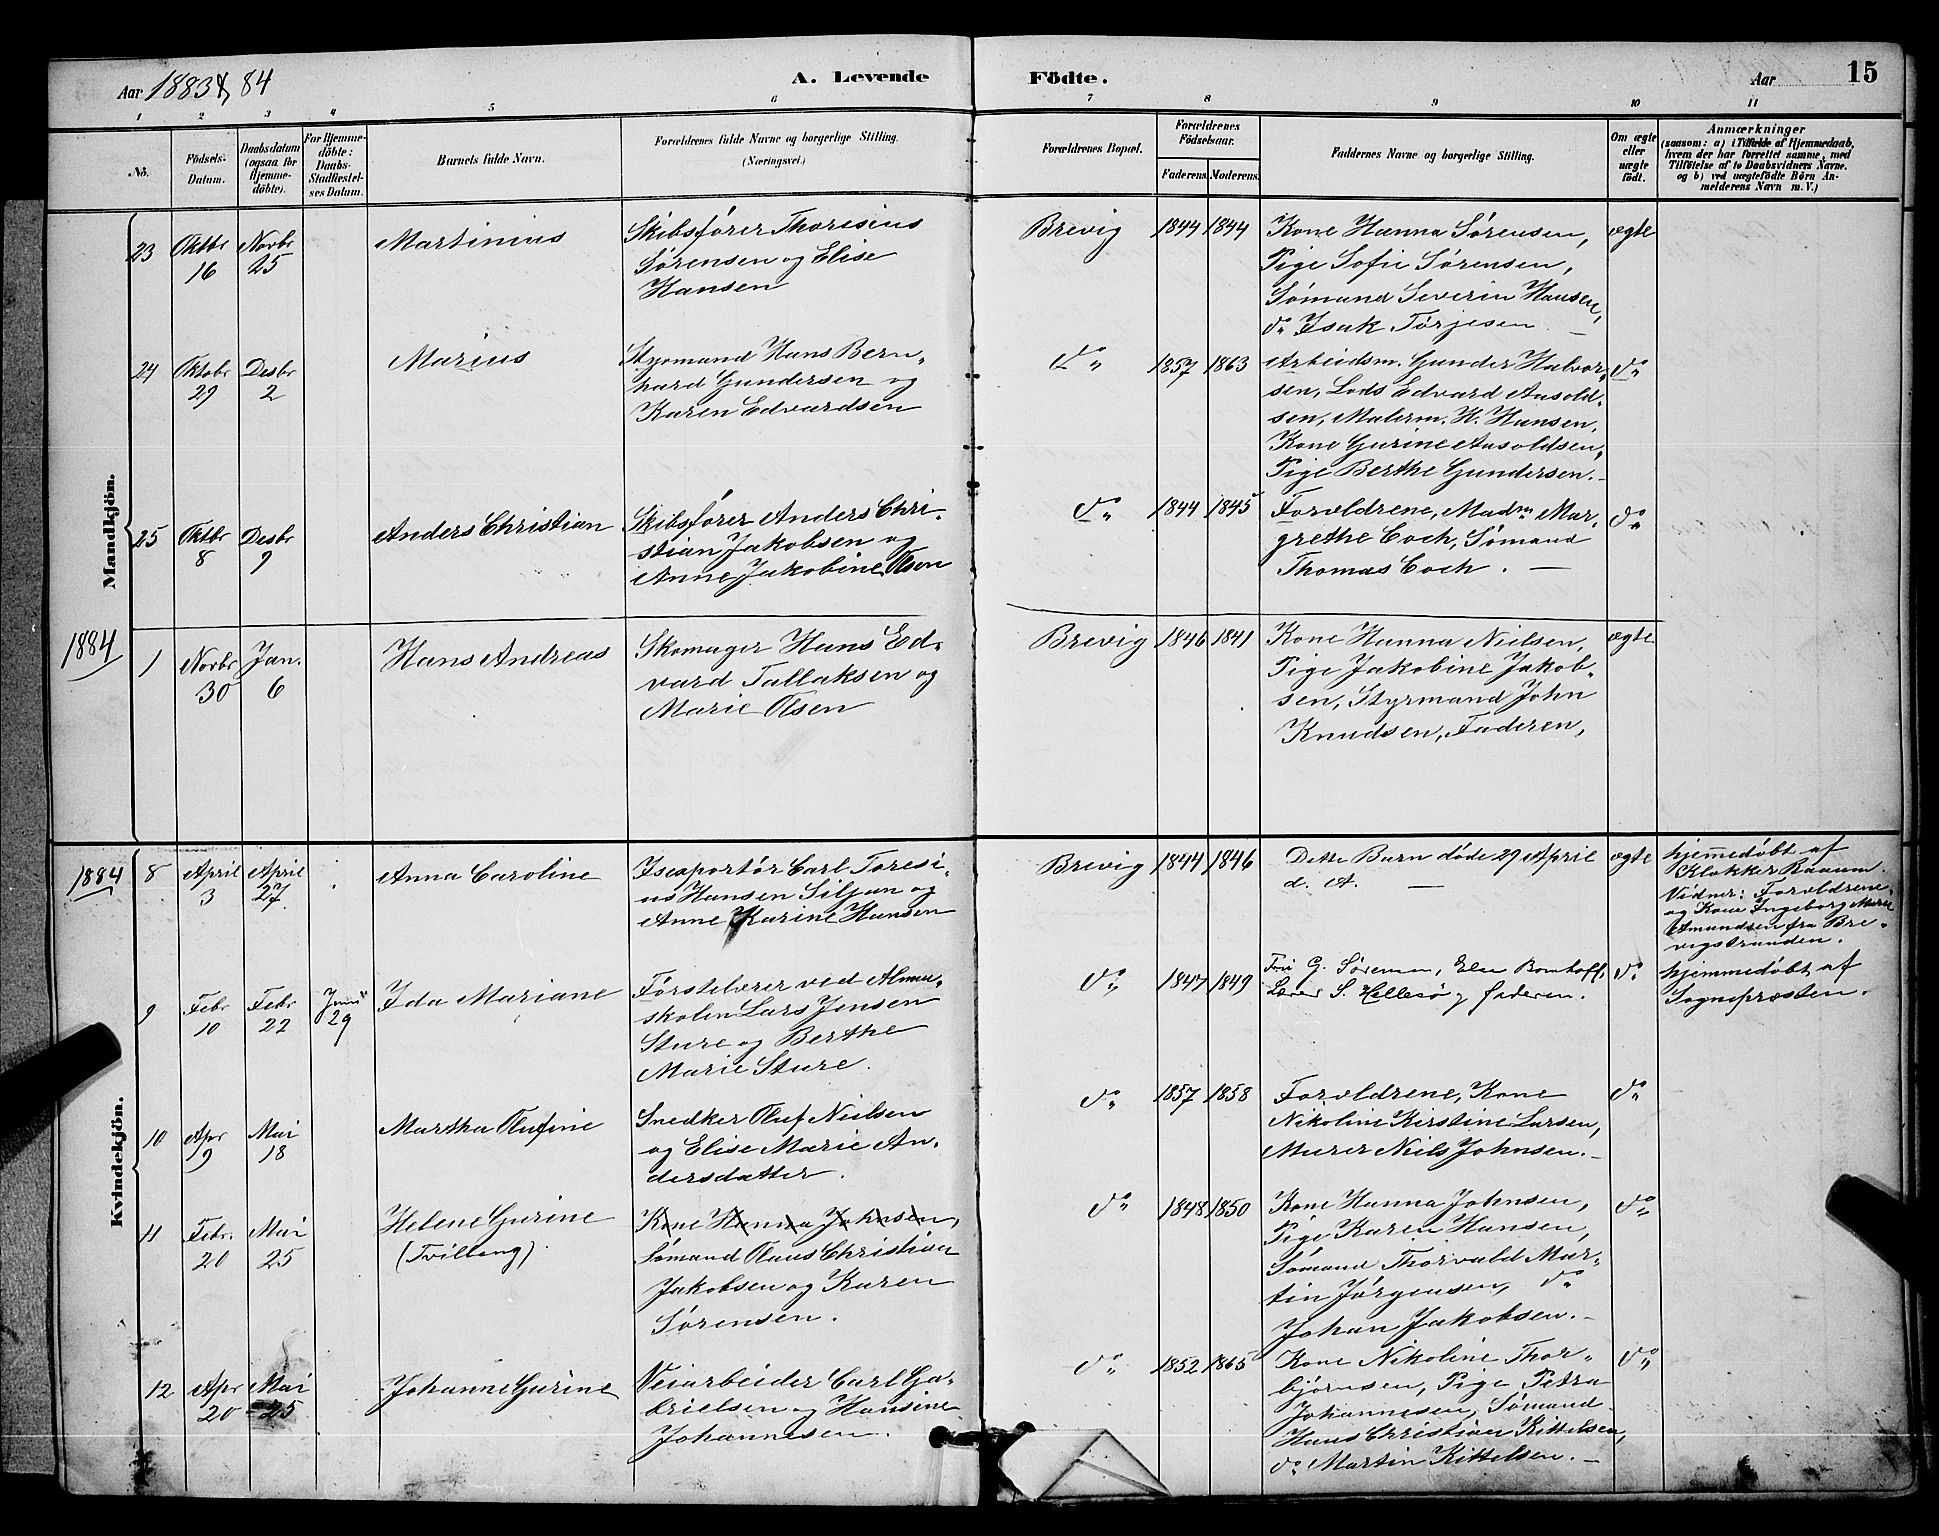 Aar 1883 & 84
A. Levende
Födte.
Aar
15
1 2 3 4 5 6 7 8 9 10 11
No.
Födsels-Datum.
Daabsdatum (ogsaa for Hjemmedöbte).
For Hjemmedöbte: Daabs-Stadfæstelses Datum.
Barnets fulde Navn.
Forældrenes fulde Navne og borgerlige Stilling. (Næringsvei.)
Forældrenes Bopæl.
Forældrenes Födselsaar.
Faderens. Moderens.
Faddernes Navne og borgerlige Stilling.
Om ægte eller uægte födt.
Anmærkninger
(saasom: a) i Tilfælde af Hjemmedaab, hvem der har forrettet samme, med Tilföielse af to Daabsvidners Navne. og b) ved uægtefödte Börn Anmelderens Navn m. V.)
Mandkjön.
23 Oktbr 16 Novbr 25 Martinius
Skibsfører Thoresius
Sørensen og Elise
Hansen
Brevig 1844 1844
Kone Hanna Sørensen,
Pige Sofie Sørensen,
Sømand Severin Hansen,
do Isak Tørjesen. —
ægte
24 Oktobr 29 Desbr 2 Marius
Styrmand Hans Bern-
hard Gundersen og
Karen Edvardsen
do 1857 1863
Arbeidsm. Gunder Halvor-
sen, Lods Edvard Aasold-
sen, Malerm. H. Hansen,
Kone Gurine Aasoldsen,
Pige Berthe Gundersen.-
do
25 Oktbr 8 Desbr 9 Anders Christian
Skibsfører Anders Chri-
stian Jakobsen og
Anne Jakobine Olsen
do 1844 1845
Forældrene, Madm Mar-
grethe Coch, Sømand
Thomas Coch. —
do
1884
1 Novbr 30 Jan. 6 Hans Andreas
Skomager Hans Ed-
vard Tallaksen og
Marie Olsen
Brevig 1846 1841
Kone Hanna Nielsen,
Pige Jakobine Jakob-
sen, Styrmand John
Knudsen, Faderen,
ægte
Kvindekjön.
1884
8 April 3 April 27 Anna Caroline
Carl Toresi-
us Hansen Siljan og
Anne Karine Hansen
Brevig 1844 1846
Dette Barn døde 29 April
d. A. —
ægte
hjemmedøbt af
Klokker Raaum.
Vidner: Forældrene
og Kone Ingeborg Marie
Amundsen fra Bre-
vigstranden.
9 Febr 10 Febr 22 Juni 29 Ida Mariane
Førstelærer ved Almue-
skolen Lars Jensen
Sture og Berthe
Marie Sture.
do 1847 1849
Fru G. Sørensen, Else Bomhoff,
Lærer S. Hellesö og Faderen.
do
hjemmedøbt af
Sognepræsten.
10 Apr 9 Mai 18 Martha Olufine
Snedker Oluf Nielsen
og Elise Marie An-
dersdatter.
do 1857 1858
Forældrene, Kone
Nikoline Kirstine Larsen,
Murer Niels Johnsen.-
do
11 Febr. 20 Mai 25 Helene Gurine
(Tvilling).
Kone Hanna Johnsen,
Sømand Olaus Christian
Jakobsen og Karen
Sørensen.
do 1848 1850
Kone Hanna Johnsen,
Pige Karen Hansen,
Sømand Thorvald Mar-
tin Jørgensen, do
Johan Jakobsen.-
do
12 Apr 20 Mai 25 Johanne Gurine
Veiarbeider Carl Ga-
brielsen og Hansine
Johannesen.
do 1852 1865
Kone Nikoline Thor-
bjørnsen, Pige Petra
Johannesen, Sømand
Hans Christian Kittelsen,
do Martin Kittelsen.-
do